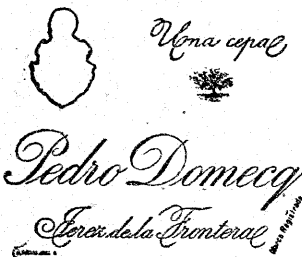 Una cepa
Pedro Domecq
Jerez de la Frontera
Marca Registrada